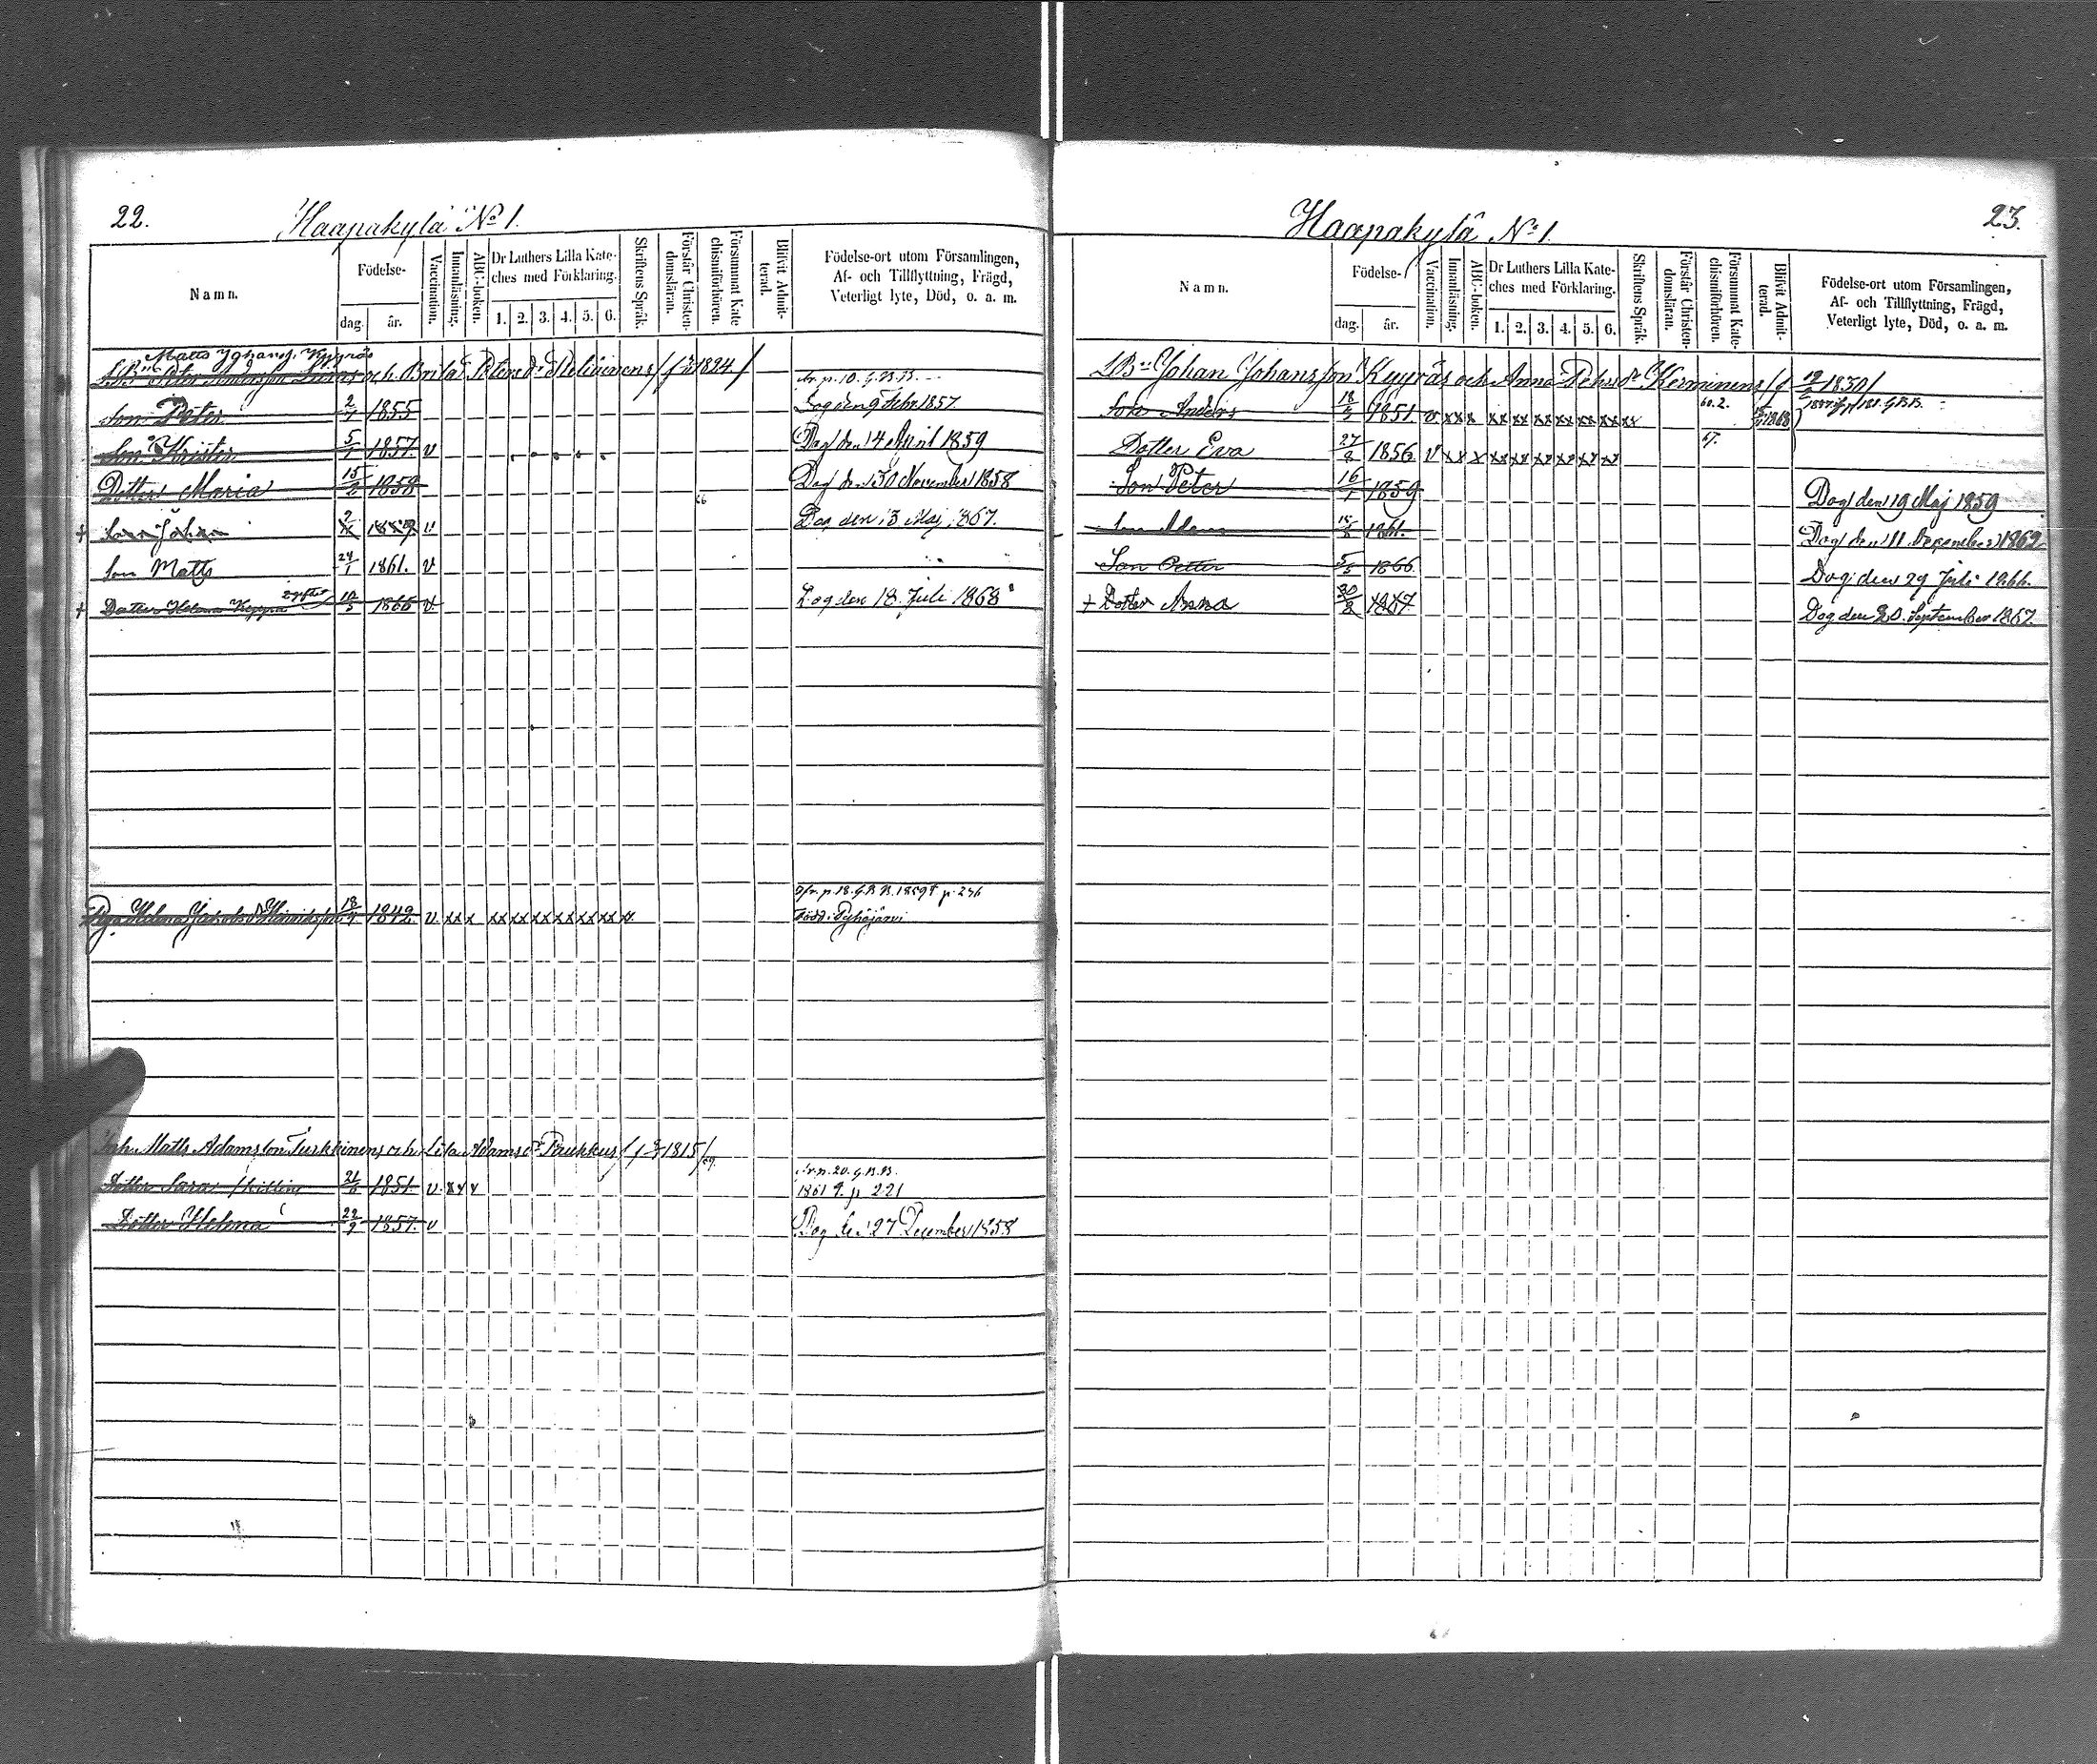 22.
Haapakylä No 1.
Namn.
Födelse-
dag.
år.
Vaccination.
Innanläsning.
ABC-boken.
Dr Luthers Lilla Kate-
ches med Förklaring.
1. 2. 3. 4. 5. 6.
Skriftens Språk.
Förstår Christen-
domsläran.
Försummat Kate
chismiförhören.
Blifvit Admit-
terad.
Födelse-ort utom Församlingen,
Af- och Tillflyttning, Frägd,
Veterligt lyte, Död, o. a. m.
Matts Johansf. Kyyräs
och Brita Petersdr 1824/
fr. p. 10. G.B.B.
Son Peter 2/1 1855 Dog den 9 Febr. 1857.
Son Krister 5/1 1857 v Dog den 14 April 1859
Dotter Maria 15/2 1858 Dog den 30 November 1858
+ Son Johan 1859 v Dog den 13 Maj 1867.
Son Matts 24/1 1861. v
+ Dotter Helena 1866 v Dog den 18. Juli 1868
fr. p. 18. G.B.B. 1859 p. 246
Pig. Helena Jacobsdr 18/4 1842 v xx x xx xx xx xx xx xx v Född i Pyhäjärvi
Inh. Matts Adamsson Turkkinen och Lisa Adamsdr Paukkus 1815/
fr. p. 20. G.B.B.
Dotter Sara 21/6 1851 v 1861 p. 221
Dotter Helena 22/9 1857. v Dog den 27 December 1858
Haapakylä No 1.
23.
Namn.
Födelse-
dag.
år.
Vaccination.
Innanläsning.
ABC-boken.
Dr Luthers Lilla Kate-
ches med Förklaring.
1. 2. 3. 4. 5. 6.
Skriftens Språk.
Förstår Christen-
domsläran.
Försummat Kate-
chismiförhören.
Blifvit Admit-
terad.
Födelse-ort utom Församlingen,
Af- och Tillflyttning, Frägd,
Veterligt lyte, Död, o. a. m.
LBn Johan Johansson Kyyräs och Anna Pehrsdr Kerminens 1830/
Son Anders 18/9 1851. v xx x xx xx xx xx xx xx xx 60. 2. 1868
Dotter Eva 27/8 1856 v xx x xx xx xx xx xx xx 67.
Son Peter 16/1 1859 Dog den 19 Maj 1859
Son Adam 1861. Dog den 11 December 1862
Son Petter 5/5 1866 Dog den 29 Juli 1866.
+ Dotter Anna 20/8 1867 Dog den 20. September 1867.